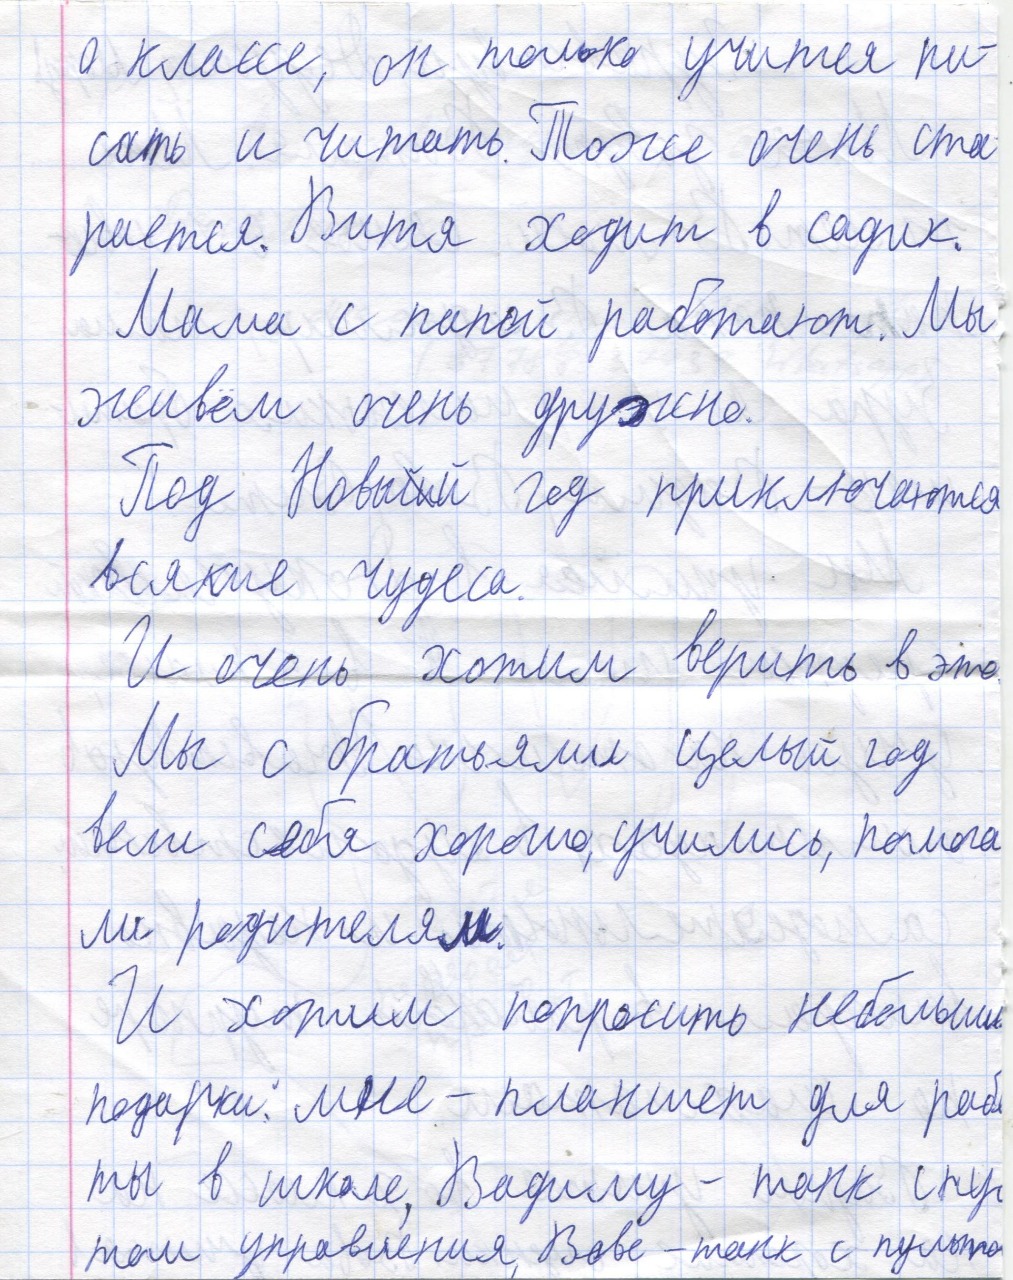 0 классе, он только учится пи-
сать и читать. Тоже очень ста-
рается. Витя ходит в садик.
Мама с папой работают. Мы
живём очень дружно.
Под Новый год приключаются
всякие чудеса.
И очень хотим верить в это.
Мы с братьями целый год
вели себя хорошо, учились, помога
ли родителям.
И хотим попросить небольшие
подарки: мне - планшет для рабо
ты в школе, Вадиму - танк с пуль
том управления, Вове - танк с пульто